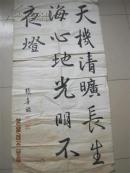 天機清曠長生
海心地光明不
夜燈